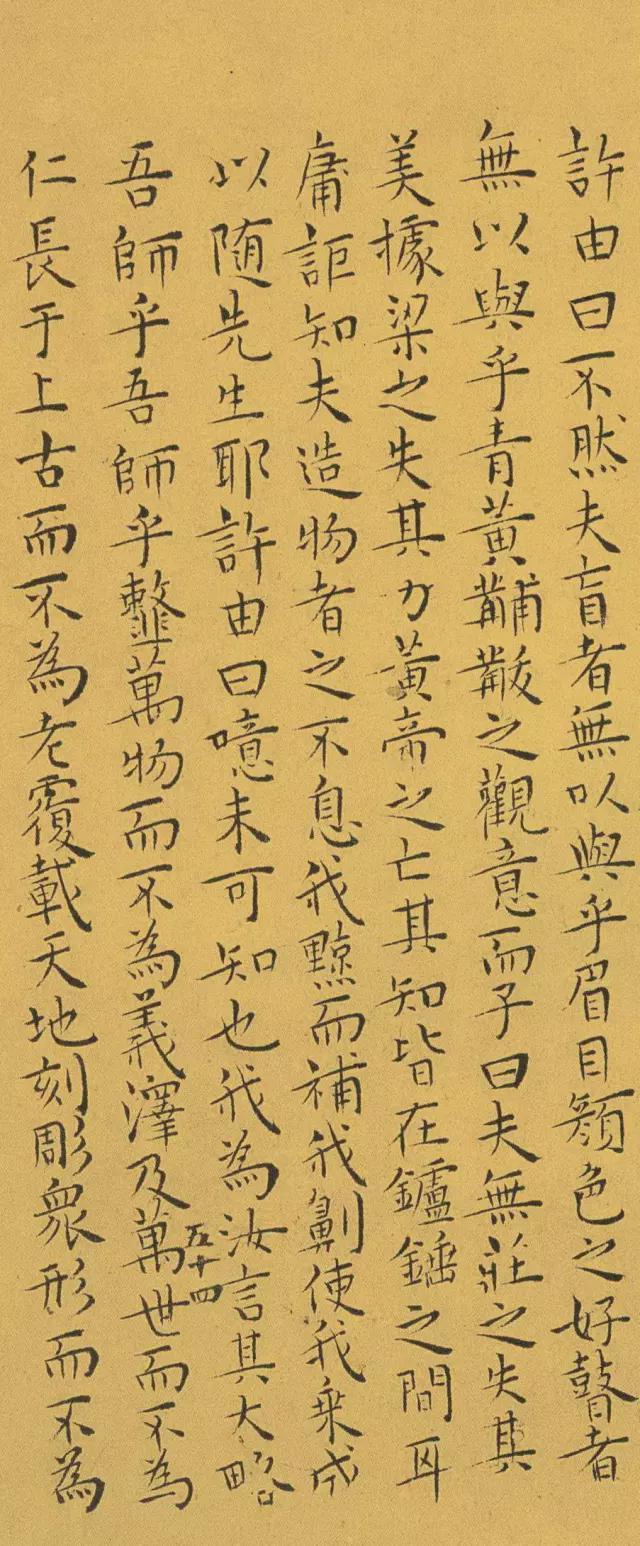 許由曰不然夫盲者無以與乎眉目顏色之好瞽者
無以與乎青黃黼黻之觀意而子曰夫無莊之失其
美據梁之失其力黃帝之亡其知皆在鑪錘之間耳
庸詎知夫造物者之不息我黥而補我劓使我乘成
以随先生耶許由曰噫未可知也我為汝言其大略
吾師乎吾師乎韲萬物而不為義澤及萬世而不為
五十四
仁長于上古而不為老覆載天地刻彫衆形而不為